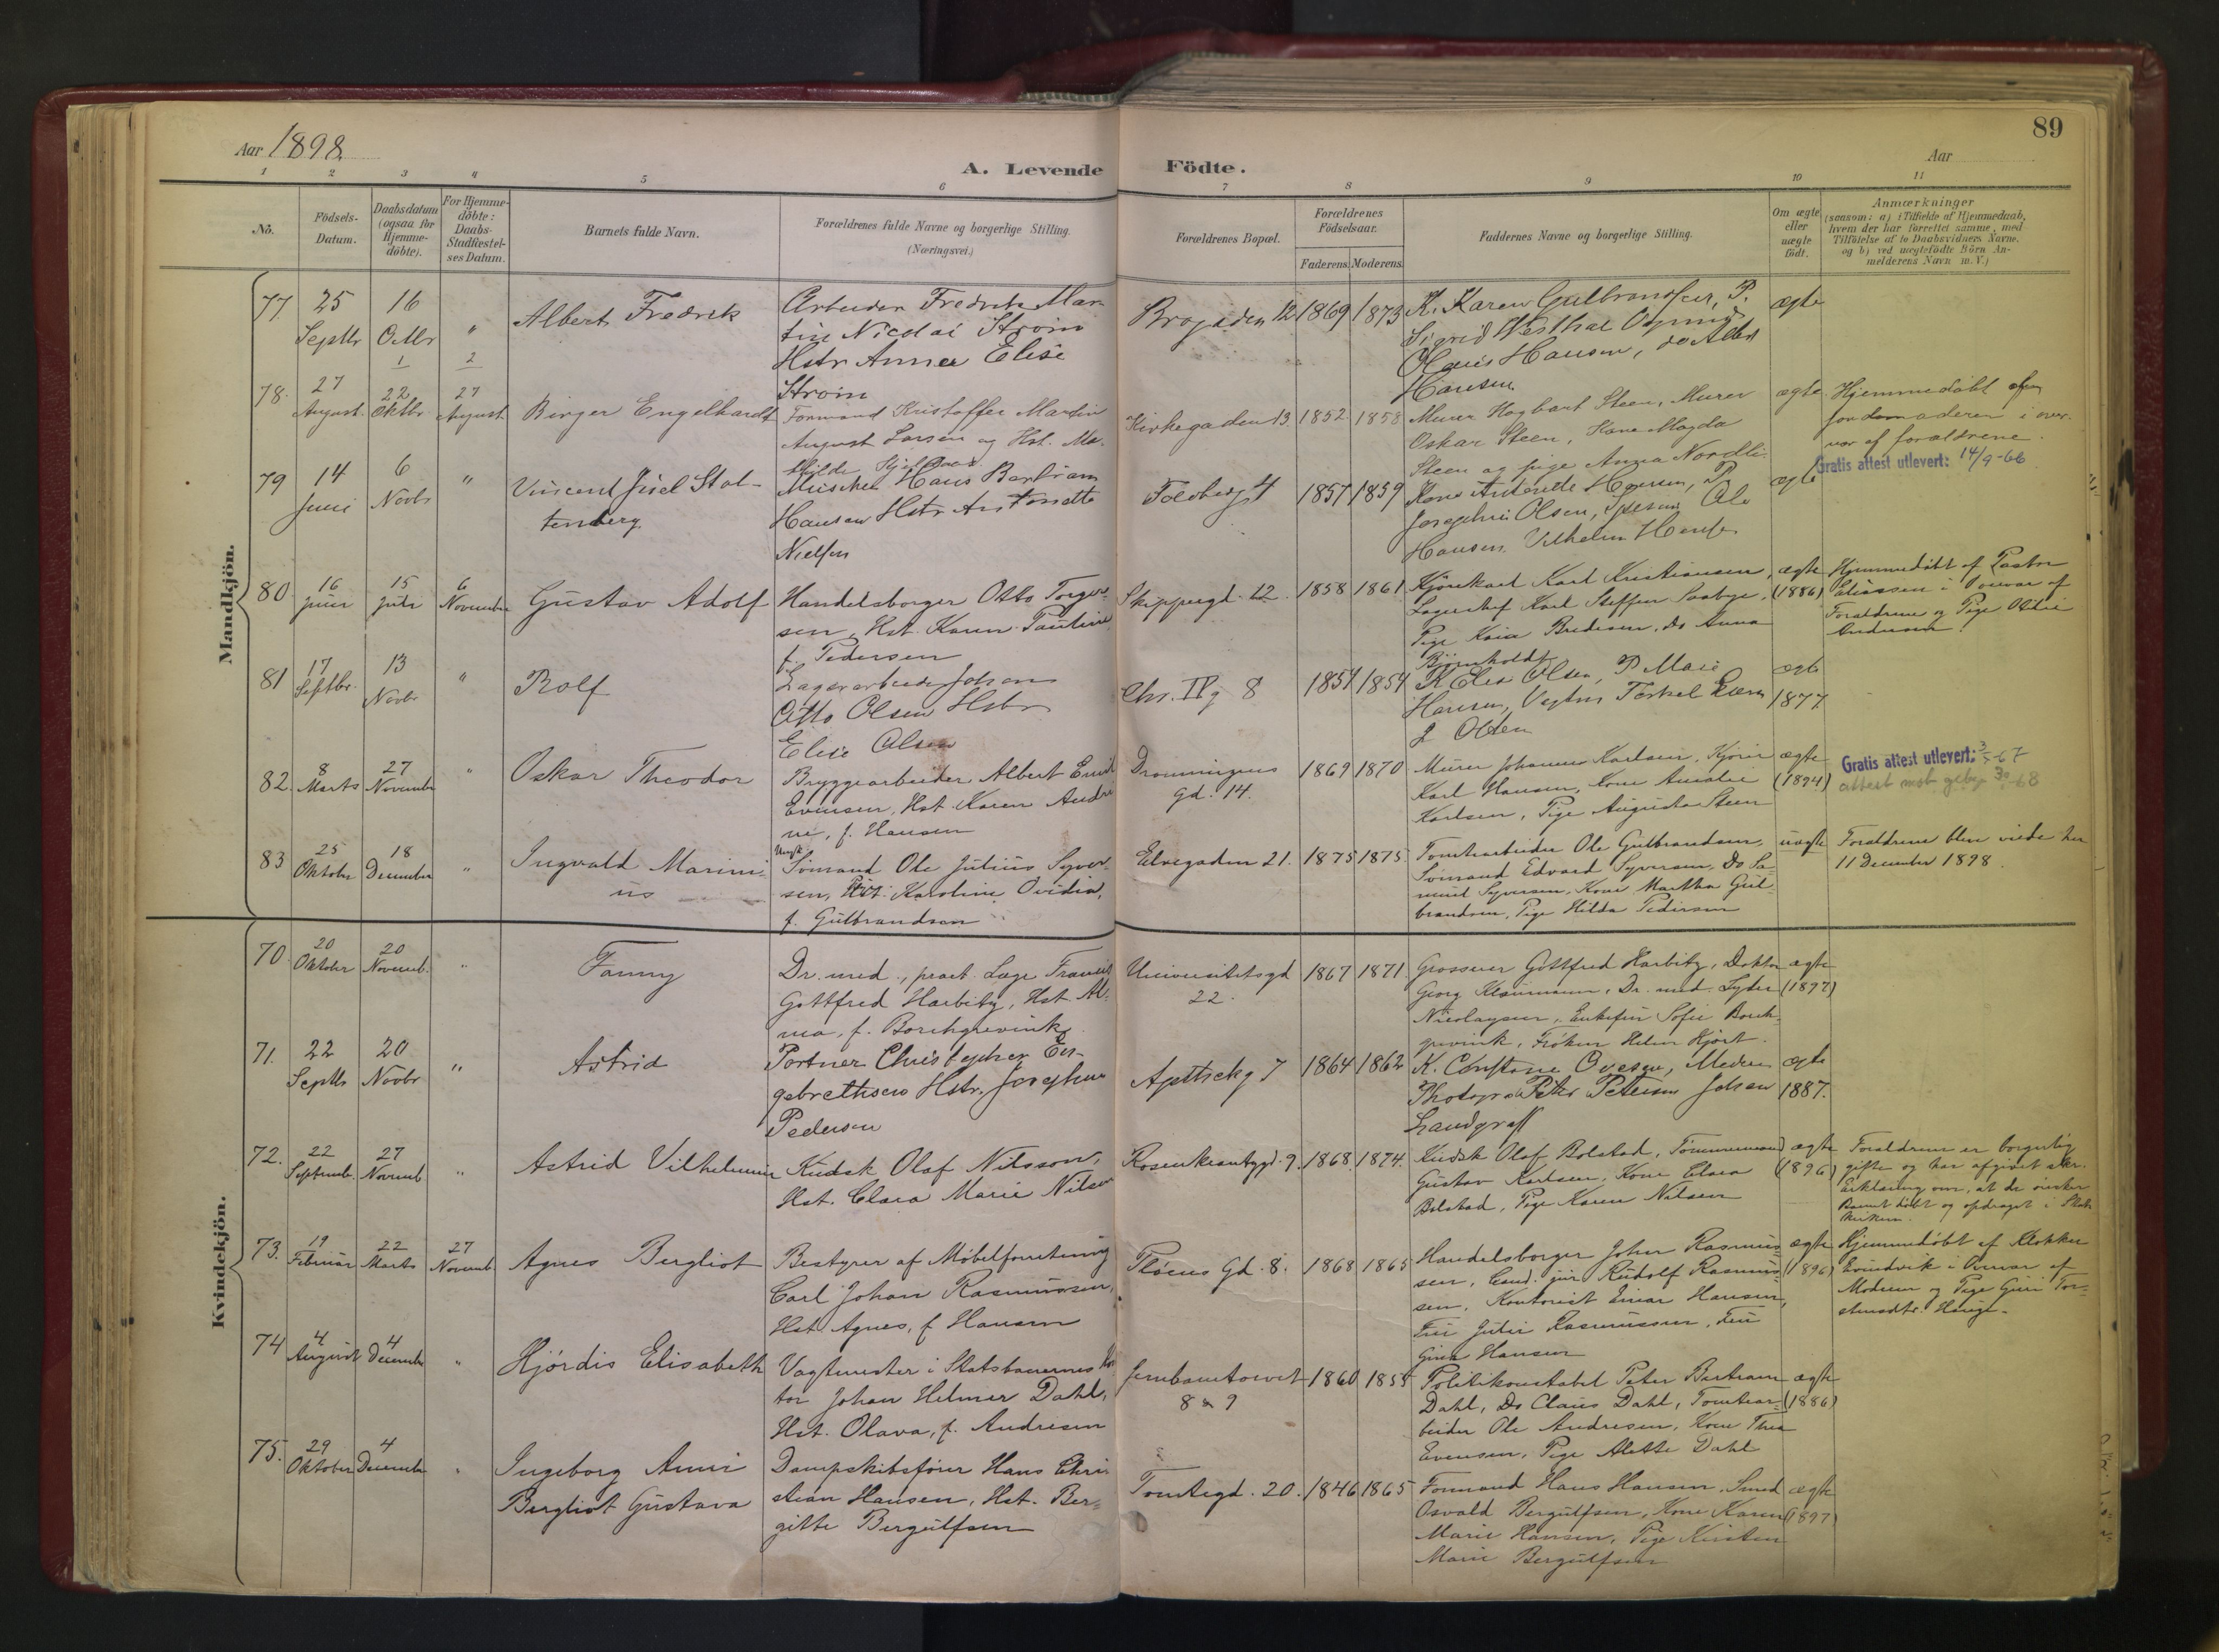 89
Aar 1898.
Aar
A. Levende Födte.
1 2 3 4 5 6 7 8 9 10 11
No.
Födsels-
Datum.
Daabsdatum
(ogsaa for
Hjemme-
döbte).
For Hjemme-
döbte:
Daabs-
Stadfæstel-
ses Datum.
Barnets fulde Navn.
Forældrenes fulde Navne og borgerlige Stilling.
(Næringsvei.)
Forældrenes Bopæl.
Forældrenes
Födselsaar.
Faderens. Moderens.
Faddernes Navne og borgerlige Stilling.
Om ægte
eller
uægte
födt.
Anmærkninger
(saasom: a) i Tilfælde af Hjemmedaab,
hvem der har forrettet samme, med
Tilföielse af to Daabsvidners Navne,
og b) ved uægtefödte Börn An-
melderens Navn m. V.)
Mandkjön.
77. 25 Septbr 16 Octbr " Albert Fredrik
Arbeider Fredrik Mar
tin Nicolai Strøm
Hstr Anna Elise
Strøm
Brogaden 12 1869 1873
K. Karen Gulbrandsen, P.
Sigrid Westhal
Hansen, do Albert
Hansen
ægte
78. 27 August 1 22 Oktbr 2 27 August Birger Engelhardt
Formand Kristoffer Martin
August Larsen og Hst. Ma-
thilde
Kirkegaden 13. 1852 1858
Murer Hagbart Steen, Murer
Oskar Steen, Kone Magda
Steen og pige Anna Nordli
ægte
Hjemmedøbt af
jordemoderen i over-
vær af forældrene.
79 14 Juni 6 Novbr " Vincent Juel Stol-
tenberg.
Hans Bertram
Hansen Hstr Antonette
Nielsen
4 1857 1859
Kone Antonette Hansen, P
Josephine Olsen, Ole
Hansen Vilhelm
ægte
Gratis attest utlevert: 14/9-66
80 16 juni 15 juli 6 November Gustav Adolf
Handelsborger Otto Torger-
sen, Hst. Karen Pauline
f. Pedersen
Skippergd. 12 1858 1861
Kjørekarl Karl Kristiansen,
Lagerchef Karl Steffen Saabye,
Pige Kaia Bredesen, do Anna
Bjørnholdt
ægte
(1886)
Hjemmedøbt af Pastor
Eliassen i overvær af
Forældrene og Pige Otilie
Andersen.
81 17 Septbr. 13 Novbr " Rolf
Lagerarbeider Johan
Otto Olsen Hstr
Elise Olsen
Chr. IV g 8 1857 1854
K Elise Olsen, P Marie
Hansen, Terkel
J Olsen
ægte
1877
82. 8 Marts 27 November " Oskar Theodor
Bryggearbeider Albert Emil
Evensen, Hst. Karen Andri
ne, f. Hansen
Dronningens
gd. 14.
1869 1870
Murer Johannes Karlsen, Kjører
Karl Hansen, Kone Amalie
Karlsen, Pige Augusta Steen
ægte
(1894)
Gratis attest utlevert:
83 25 Oktober 18 December " Ingvald Marini-
us
Ungk.
Sømand Ole Julius Syver-
sen, Karoline Ovidia,
f. Gulbrandsen
Elvegaden 21. 1875 1875
Tomtearbeider Ole Gulbrandsen,
Sømand Edvard Syversen, Do Sa-
muel Syversen, Kone Martha Gul-
brandsen, Pige Hilda Pedersen
uægte
Forældrene blev viede her
11 December 1898.
Kvindekjön.
70. 20 Oktober 20 Novemb. " Fanny
Dr. med., pract. Læge Francis
Gottfred Harbitz, Hst. Al-
ma, f. Borchgrevink.
Universitetsgd
22.
1867 1871
Grosserer Gottfred Harbitz, Doktor
Georg Klaumann, Dr. med. Lyder
Nicolaysen, Enkefru Sofie Borch-
grevink, Frøken Helen Hjort.
ægte
(1897)
71. 22 Septbr 20 Novbr " Astrid
Portner Christopher En-
gebrethsen Hstr. Josephine
Pedersen
Apothekg 7 1864 1862
K. Constance Ovesen,
Peter Petersen Johan
Landgraff
ægte
1887.
72. 22 Septemb. 27 Novemb " Astrid Vilhelmine
Kudsk Olaf Nilsson,
Hst. Clara Marie Nilsen
Rosenkrantzgd. 9. 1868 1874.
Kudsk Olaf Bolstad, Tømmermand
Gustav Karlsen, Kone Clara
Bolstad, Pige Karen Nilsen
ægte
(1896)
Forældrene er borgerlig
gifte og har afgivet skr.
Erklæring om, at de ønsker
Barnet døbt og opdraget i Stats
kirken.
73. 19 Februar 22 Marts 27 Novemb. Agnes Bergliot
Bestyrer af Møbelforretning
Carl Johan Rasmussen,
Hst. Agnes, f. Hansen
Thøens Gd. 8. 1868 1865
Handelsborger John Rasmus-
sen, Cand. jur. Rudolf Rasmus-
sen, Kontorist Einar Hansen,
Fru Julie Rasmussen, Fru
Gina Hansen
ægte
(1896)
Hjemmedøbt af Klokker
Evindvik i Overvær af
Moderen og Pige Guri Tor-
stensdtr. Hauge.
74 4 August 4 December " Hjørdis Elisabeth
Vagtmester i Statsbanernes Kon
tor Johan Helmer Dahl,
Hst. Olava, f. Andresen
Jernbanetorvet
8 & 9
1860 1855
Politikonstabel Peter Bertram
Dahl, Do Claus Dahl, Tomtear-
beider Ole Andresen, Kone Thea
Evensen, Pige Alette Dahl
ægte
(1886)
75. 29 Oktober 4 December " Ingeborg Anni
Bergliot Gustava
Dampskibsfører Hans Chri
stian Hansen, Hst. Ber-
gitte Bergulfsen
Tomtegd. 20. 1846 1865
Formand Hans Hansen, Smed
Osvald Bergulfsen, Kone Karen
Marie Hansen, Pige Kirsten
Marie Bergulfsen
ægte
(1897)